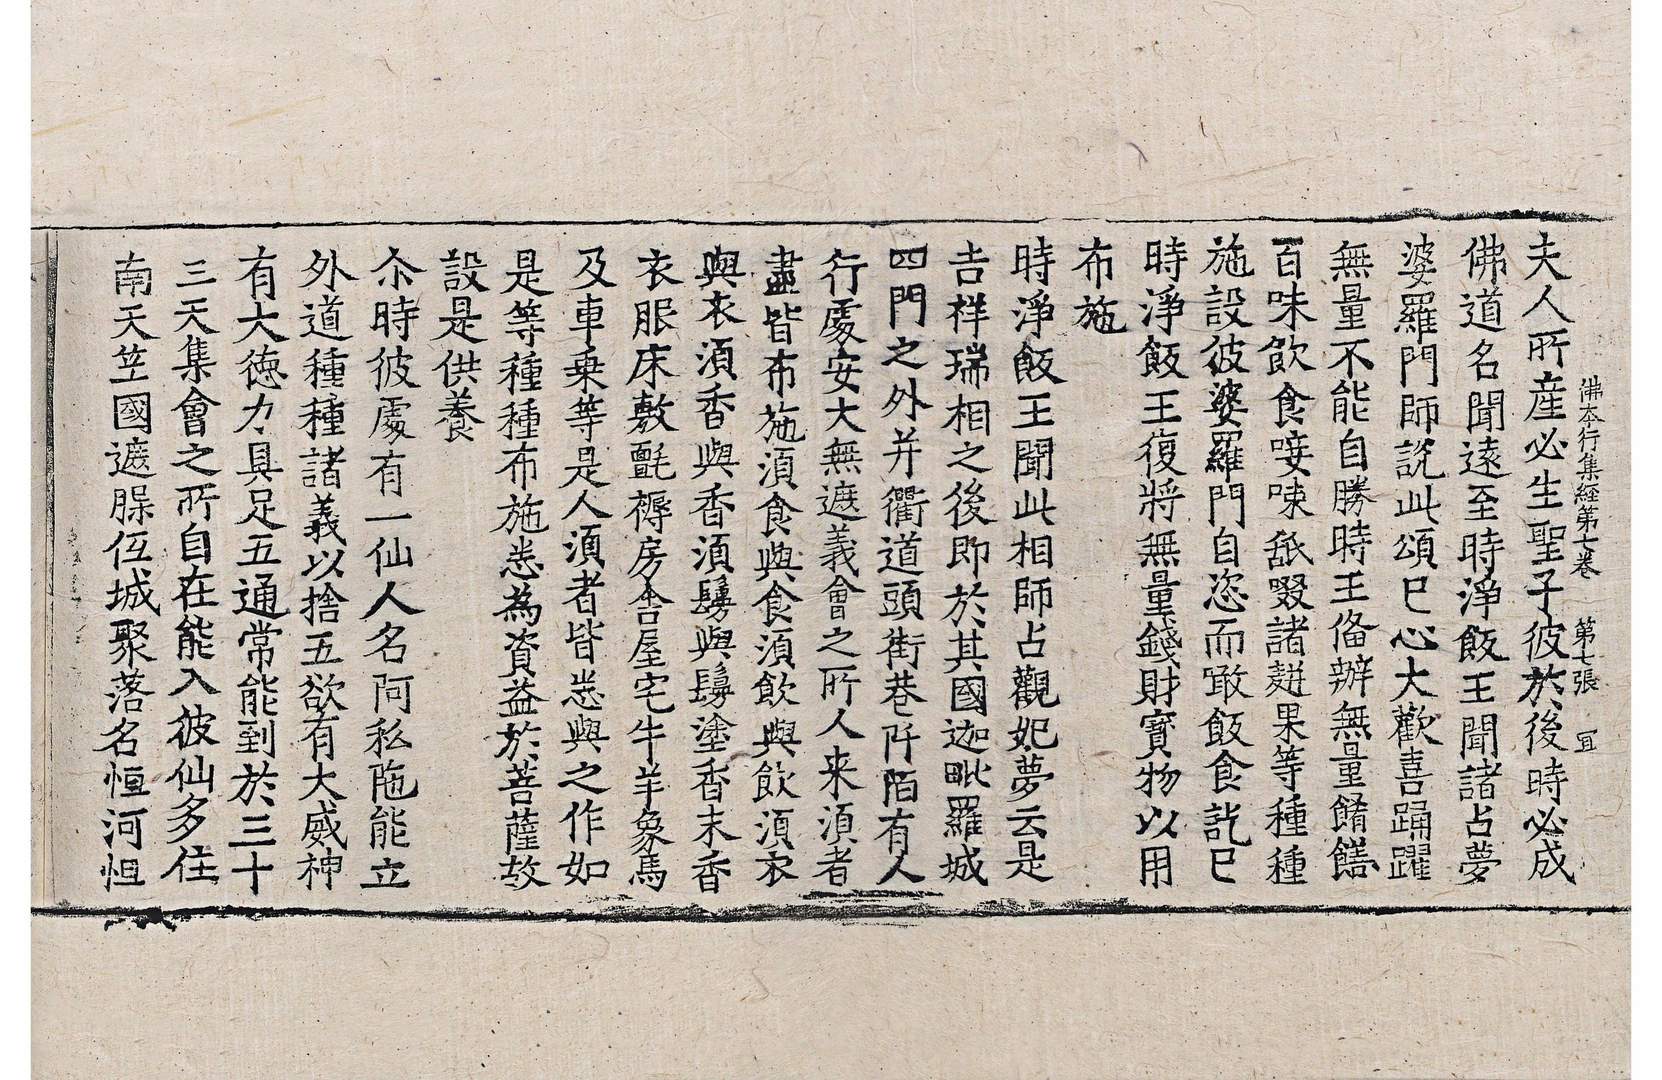 佛本行集經第七卷 第七張 冝
夫人所産必生聖子彼於後時必成
佛道名聞遠至時淨飯王聞諸占夢
婆羅門師說此頌已心大歡喜踊躍
無量不能自勝時王俻辦無量餚饍
百味飲食唼㖨舐啜諸麨果等種種
施設彼婆羅門自恣而噉飯食訖已
時淨飯王復將無量錢財寶物以用
布施
時淨飯王聞此相師占觀妃夢云是
吉祥瑞相之後即於其國迦毗羅城
四門之外并衢道頭街巷阡陌有人
行處安大無遮義會之所人来湏者
盡皆布施湏食與食湏飲與飲湏衣
與衣湏香與香湏鬘與鬘塗香末香
衣服床敷氎褥房舎屋宅牛羊象馬
及車乗等是人湏者皆悉與之作如
是等種種布施悉為資益於菩薩故
設是供養
尒時彼處有一仙人名阿私陁能立
外道種種諸義以捨五欲有大威神
有大徳力具足五通常能到於三十
三天集會之所自在能入彼仙多住
南天笁國遮脲伍城聚落名恒河怛